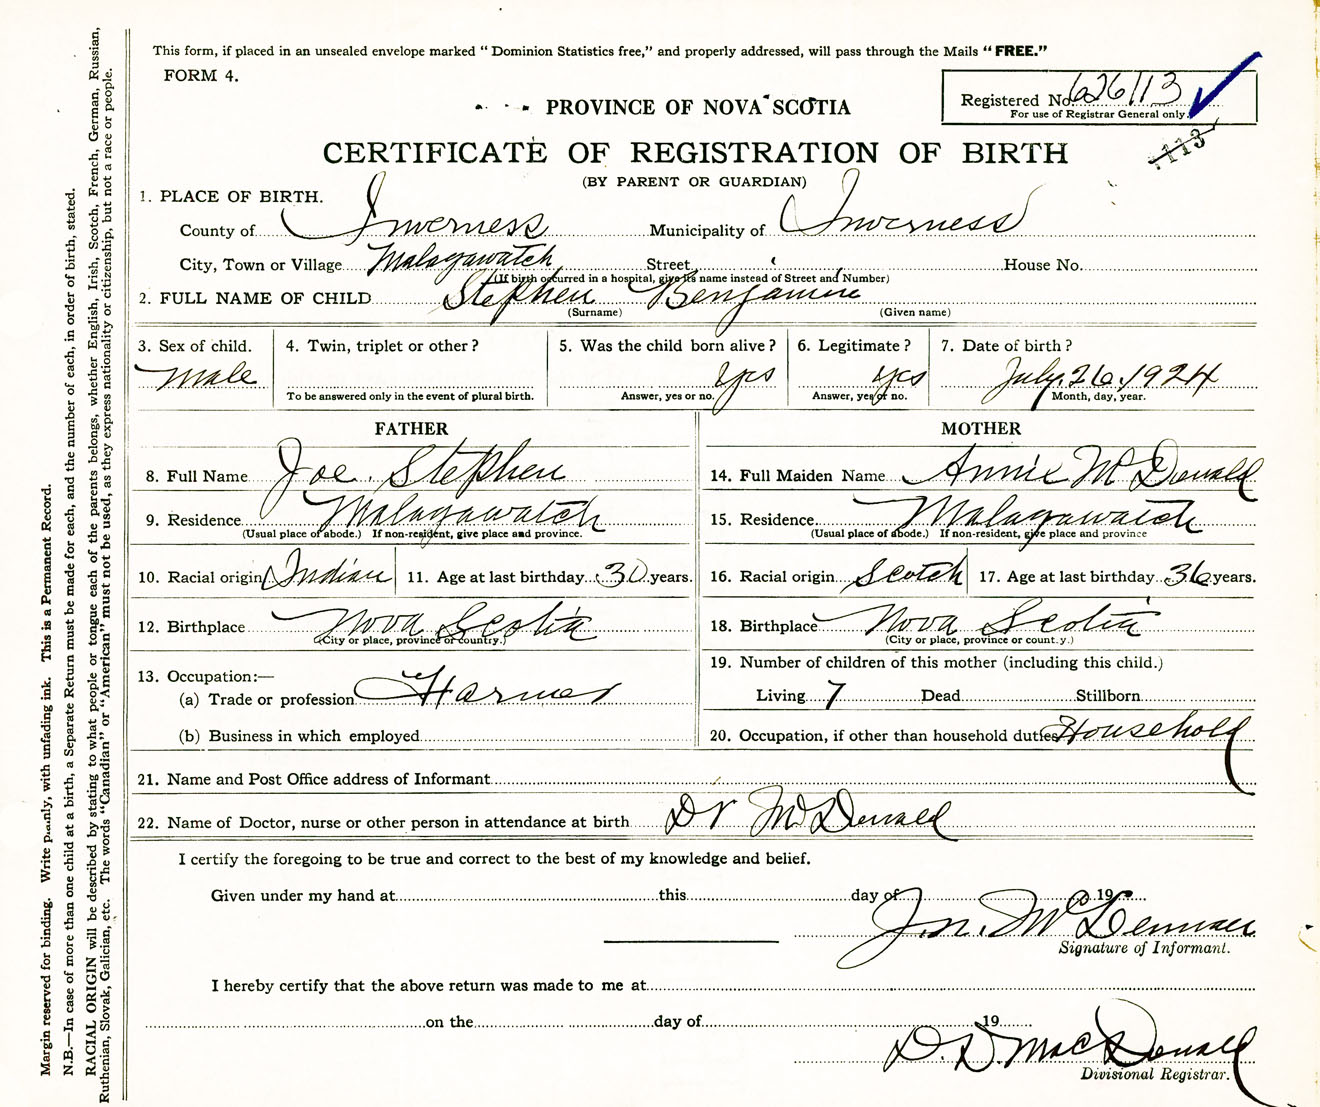 This form, if placed in an unsealed envelope marked "Dominion Statistics free," and properly addressed, will pass through the Mails "FREE."
FORM 4.
Registered No. 626113
For use of Registrar General only.
1113
PROVINCE OF NOVA SCOTIA
CERTIFICATE OF REGISTRATION OF BIRTH
(BY PARENT OR GUARDIAN)
1. PLACE OF BIRTH.
County of Inverness Municipality of Inverness
City, Town or Village Malagawatch Street House No.
(If birth occurred in a hospital, give its name instead of Street and Number)
2. FULL NAME OF CHILD Stephen Benjamine
(Surname) (Given name)
3. Sex of child. 4. Twin, triplet or other? 5. Was the child born alive? 6. Legitimate? 7. Date of birth?
Male yes yes July. 26. 1924
To be answered only in the event of plural birth. Answer, yes or no. Answer, yes or no. Month, day, year.
FATHER
8. Full Name Joe. Stephen
9. Residence Malagawatch
(Usual place of abode.) If non-resident, give place and province.
10. Racial origin Indian 11. Age at last birthday 30 years.
12. Birthplace Nova Scotia
(City or place, province or country.)
13. Occupation:—
(a) Trade or profession Farmer
(b) Business in which employed
MOTHER
14. Full Maiden Name Annie McDonald
15. Residence Malagawatch
(Usual place of abode.) If non-resident, give place and province
16. Racial origin Scotch 17. Age at last birthday 36 years.
18. Birthplace Nova Scotia
(City or place, province or country.)
19. Number of children of this mother (including this child.)
Living 7 Dead Stillborn
20. Occupation, if other than household duties Household
21. Name and Post Office address of Informant
22. Name of Doctor, nurse or other person in attendance at birth Dr McDonald
I certify the foregoing to be true and correct to the best of my knowledge and belief.
Given under my hand at this day of 19
Signature of Informant.
I hereby certify that the above return was made to me at
on the day of 19
D. D. MacDonald
Divisional Registrar.
Margin reserved for binding. Write plainly, with unfading ink. This is a Permanent Record.
N.B.—In case of more than one child at a birth, a Separate Return must be made for each, and the number of each, in order of birth, stated.
RACIAL ORIGIN will be described by stating to what people or tongue each of the parents belongs, whether English, Irish, Scotch, French, German, Russian,
Ruthenian, Slovak, Galician, etc. The words "Canadian" or "American" must not be used, as they express nationality or citizenship, but not a race or people.